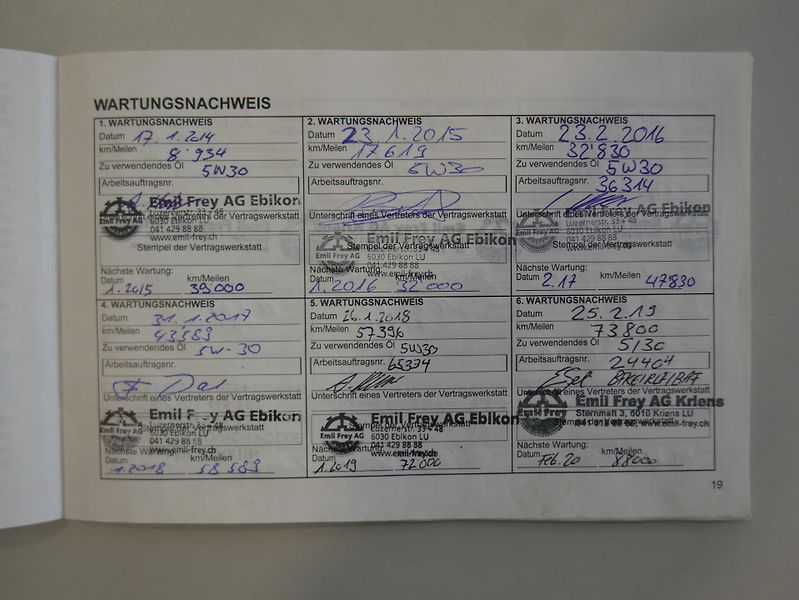 WARTUNGSNACHWEIS
1. WARTUNGSNACHWEIS
Datum 17.1.2014
km/Meilen 8'934
Zu verwendendes Öl 5W30
Arbeitsauftragsnr.
Emil Frey AG Ebikon
Luzernerstr. 33 + 48
Unterschrift eines Vertreters der Vertragswerkstatt
6030 Ebikon LU
041 429 88 88
www.emil-frey.ch
Emil Frey AG
Stempel der Vertragswerkstatt
Nächste Wartung:
Datum 1.2015 km/Meilen 39000
2. WARTUNGSNACHWEIS
Datum 23.1.2015
km/Meilen 17619
Zu verwendendes Öl 5W30
Arbeitsauftragsnr.
Unterschrift eines Vertreters der Vertragswerkstatt
Emil Frey AG Ebikon
Stempel der Vertragswerkstatt
Emil Frey AG
6030 Ebikon LU
041 429 88 88
www.emil-frey.ch
Nächste Wartung:
Datum 1.2016 km/Meilen 32000
3. WARTUNGSNACHWEIS
Datum 23.2.2016
km/Meilen 32'830
Zu verwendendes Öl 5W30
Arbeitsauftragsnr. 36314
Emil Frey AG Ebikon
Unterschrift eines Vertreters der Vertragswerkstatt
Luzernerstr. 33 + 48
6030 Ebikon LU
Emil Frey AG
Stempel der Vertragswerkstatt
041 429 88 88
www.emil-frey.ch
Nächste Wartung:
Datum 2.17 km/Meilen 47830
4. WARTUNGSNACHWEIS
Datum 31.1.2017
km/Meilen 43'583
Zu verwendendes Öl 5W-30
Arbeitsauftragsnr.
Unterschrift eines Vertreters der Vertragswerkstatt
Emil Frey AG Ebikon
Luzernerstr. 33 + 48
Stempel der Vertragswerkstatt
6030 Ebikon LU
Emil Frey AG
041 429 88 88
www.emil-frey.ch
Nächste Wartung:
Datum 1.2018 km/Meilen 58583
5. WARTUNGSNACHWEIS
Datum 26.1.2018
km/Meilen 57396
Zu verwendendes Öl 5W30
Arbeitsauftragsnr. 65334
Unterschrift eines Vertreters der Vertragswerkstatt
Emil Frey AG Ebikon
Luzernerstr. 33 + 48
Emil Frey AG
6030 Ebikon LU
041 429 88 88
www.emil-frey.ch
Nächste Wartung:
Datum 1.2019 km/Meilen 72000
6. WARTUNGSNACHWEIS
Datum 25.2.19
km/Meilen 73800
Zu verwendendes Öl 5/30
Arbeitsauftragsnr. 24404
Unterschrift eines Vertreters der Vertragswerkstatt
Emil Frey AG Kriens
Sternmatt 3, 6010 Kriens LU
www.emil-frey.ch
Emil Frey AG
Nächste Wartung:
Datum Feb.20 km/Meilen 88000
19